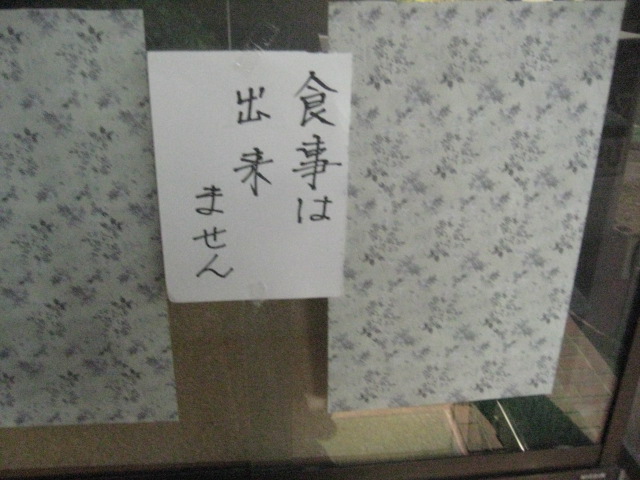 食事は
出来
ません